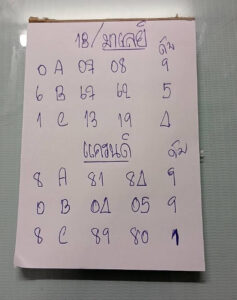 18/มาเลย์
ดับ
0 A 07 08 9
6 B 67 62 5
1 C 13 19 4
แกรนด์
ดับ
8 A 81 84 9
0 B 04 05 9
8 C 89 80 1